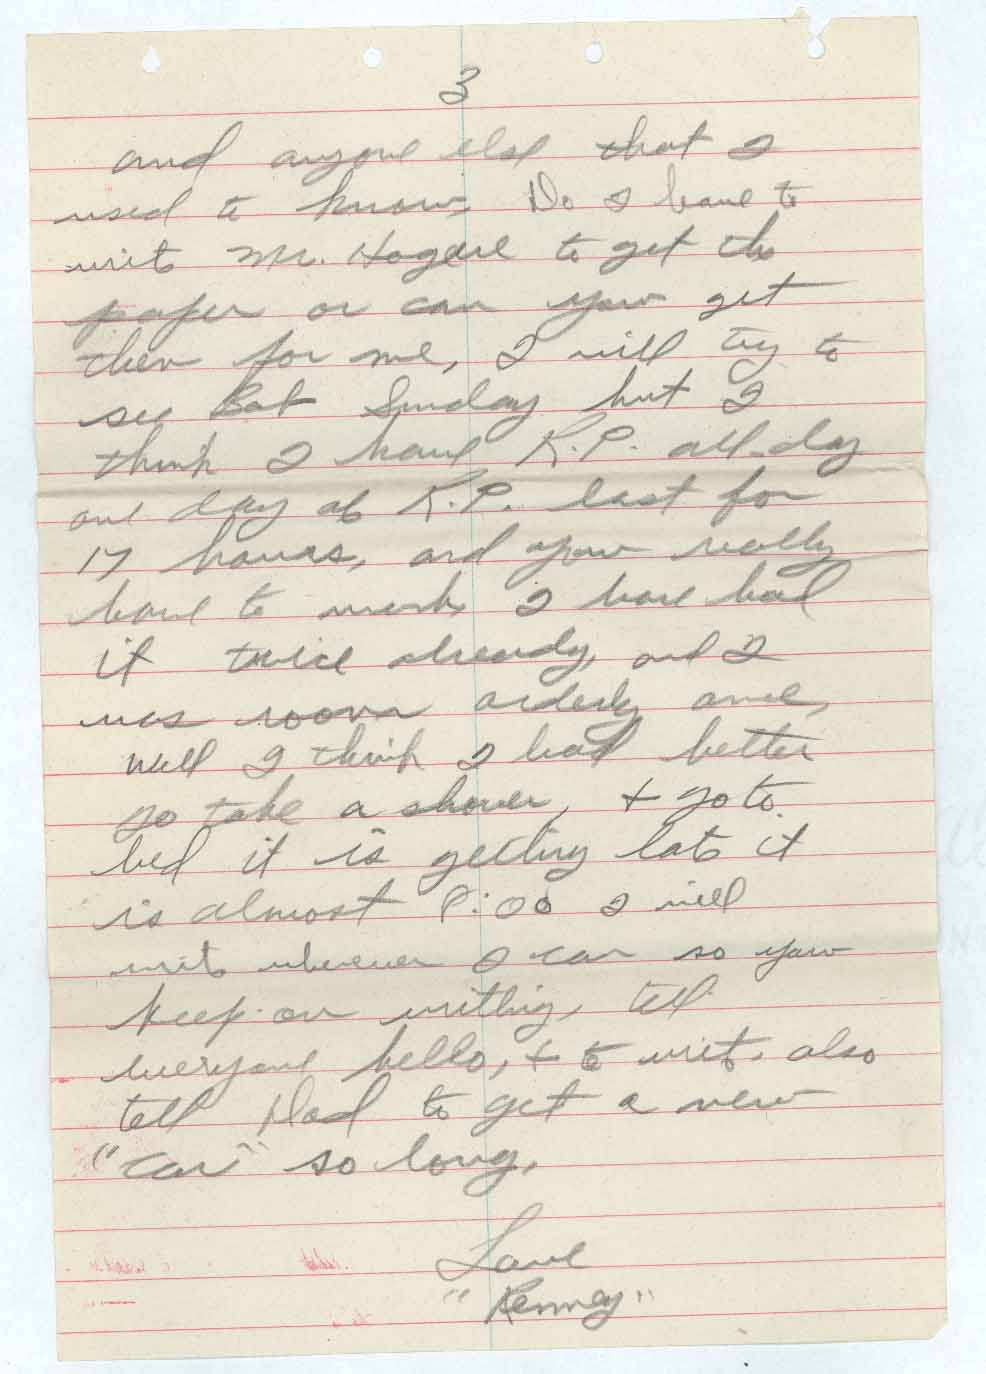 3
and anyone else that I
used to know. Do I have to
write Mr. to get the
paper or can you get
them for me, I will try to
see Bob Sunday but I
think I have K.P. all-day
one day of K.P. last for
17 hours, and you really
have to work I have had
it twice already, and I
was room orderly once,
Well I think I had better
go take a shower, + go to
bed it is getting late it
is almost :00 I will
write whenever I can so you
keep on writing, tell
everyone hello, + to write. also
tell Dad to get a new
"car" so long,
Love
"Kenney"